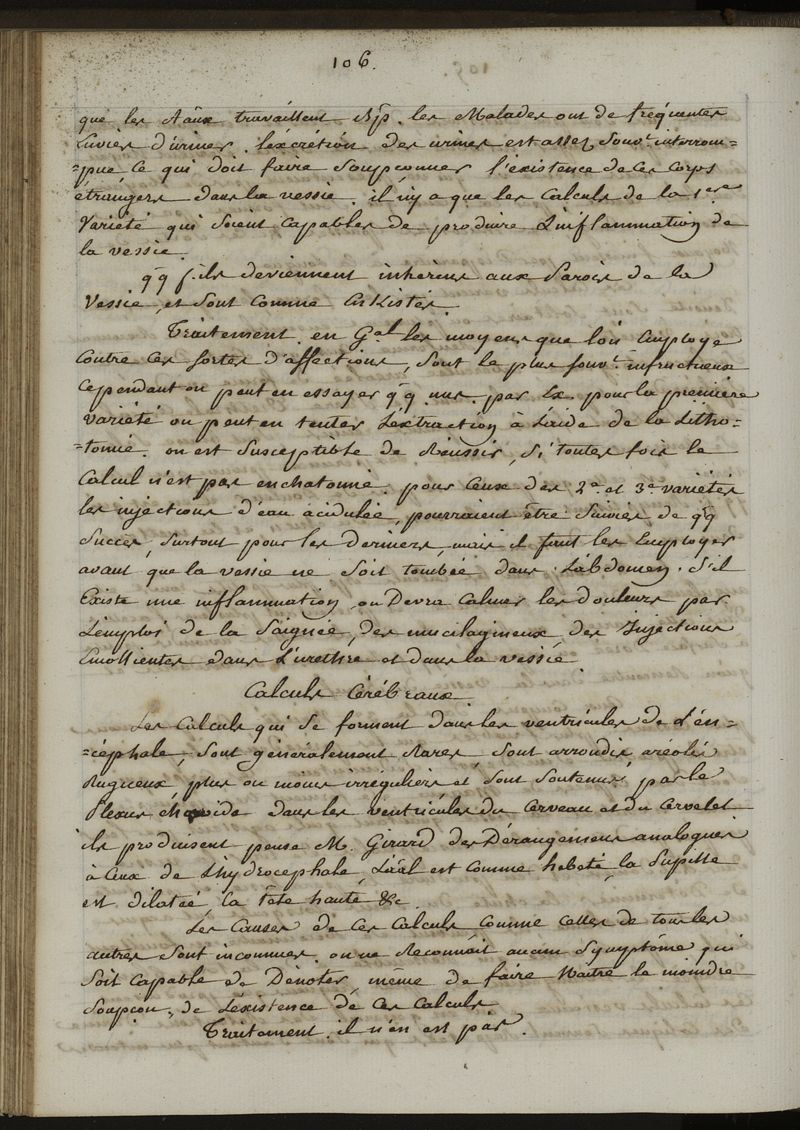 106.
que les Aãux travaillent. Rp. les Malades ont de fréquentes
Envies d'uriner. l'excrétion des urines est assez Souvt. interrom=
=pue, Ce qui doit faire Soupconner l'existence de ces Corps
étrangers dans la vessie. il n'y a que les Calculs de la 1ere
Variété qui Soient Capables de produire L'inflammation de
la vessie.
qq f. ils deviennent inhérens aux Parois de la
Vessie, et Sont Comme enKistés.
Traitement. en Gal les moyens que l'on Employe
Contre Ces sortes d'affections, Sont le plus souvt. infructueux
Cependant on peut en essayer qq uns. par Ex. pour la première
variété on peut en tenter L'extraction à L'aide de la Litho=
=tomie. on est Susceptible de Réussir, Si toutes fois le
Calcul n'est pas enchatonné. pour Ceux des 2e. et 3e. variétés
les injections d'eau acidulée, pourraient être Suivies de qq
Succès, Surtout pour les derniers, mais il faut les Employer
avant que la vessie ne Soit tombée dans L'abdomen. S'il
Existe une inflammation, on Devra Calmer les douleurs par
L'emploi de la Saignée, des mucilagineux, des Injections
Emollientes dans L'urethre et dans la vessie.
Calculs Cérébraux.
Les Calculs qui Se forment dans les ventricules de L'en=
=céphale, Sont généralement Rares, Sont arrondis, aréolés
Rugueux, plus ou moins irréguliers et Sont Soutenus par le
Plexus choroïde dans les ventricules du Cerveau et du Cervelet
ils produisent pense M. Girard des Dérangemens analogues
à Ceux de L'hydrocephale, L'aãl est Comme hebété, la Pupille
est dilatée, la tête haute &c.
Les Causes de Ces Calculs, Comme Celles de tous les
autres Sont inconnues. on ne Reconnait aucun Symptôme qui
Soit Capable de Dénoter, même de faire Naitre le moindre
Soupçon, de L'existence de Ces Calculs.
Traitement. il n'en est pas.